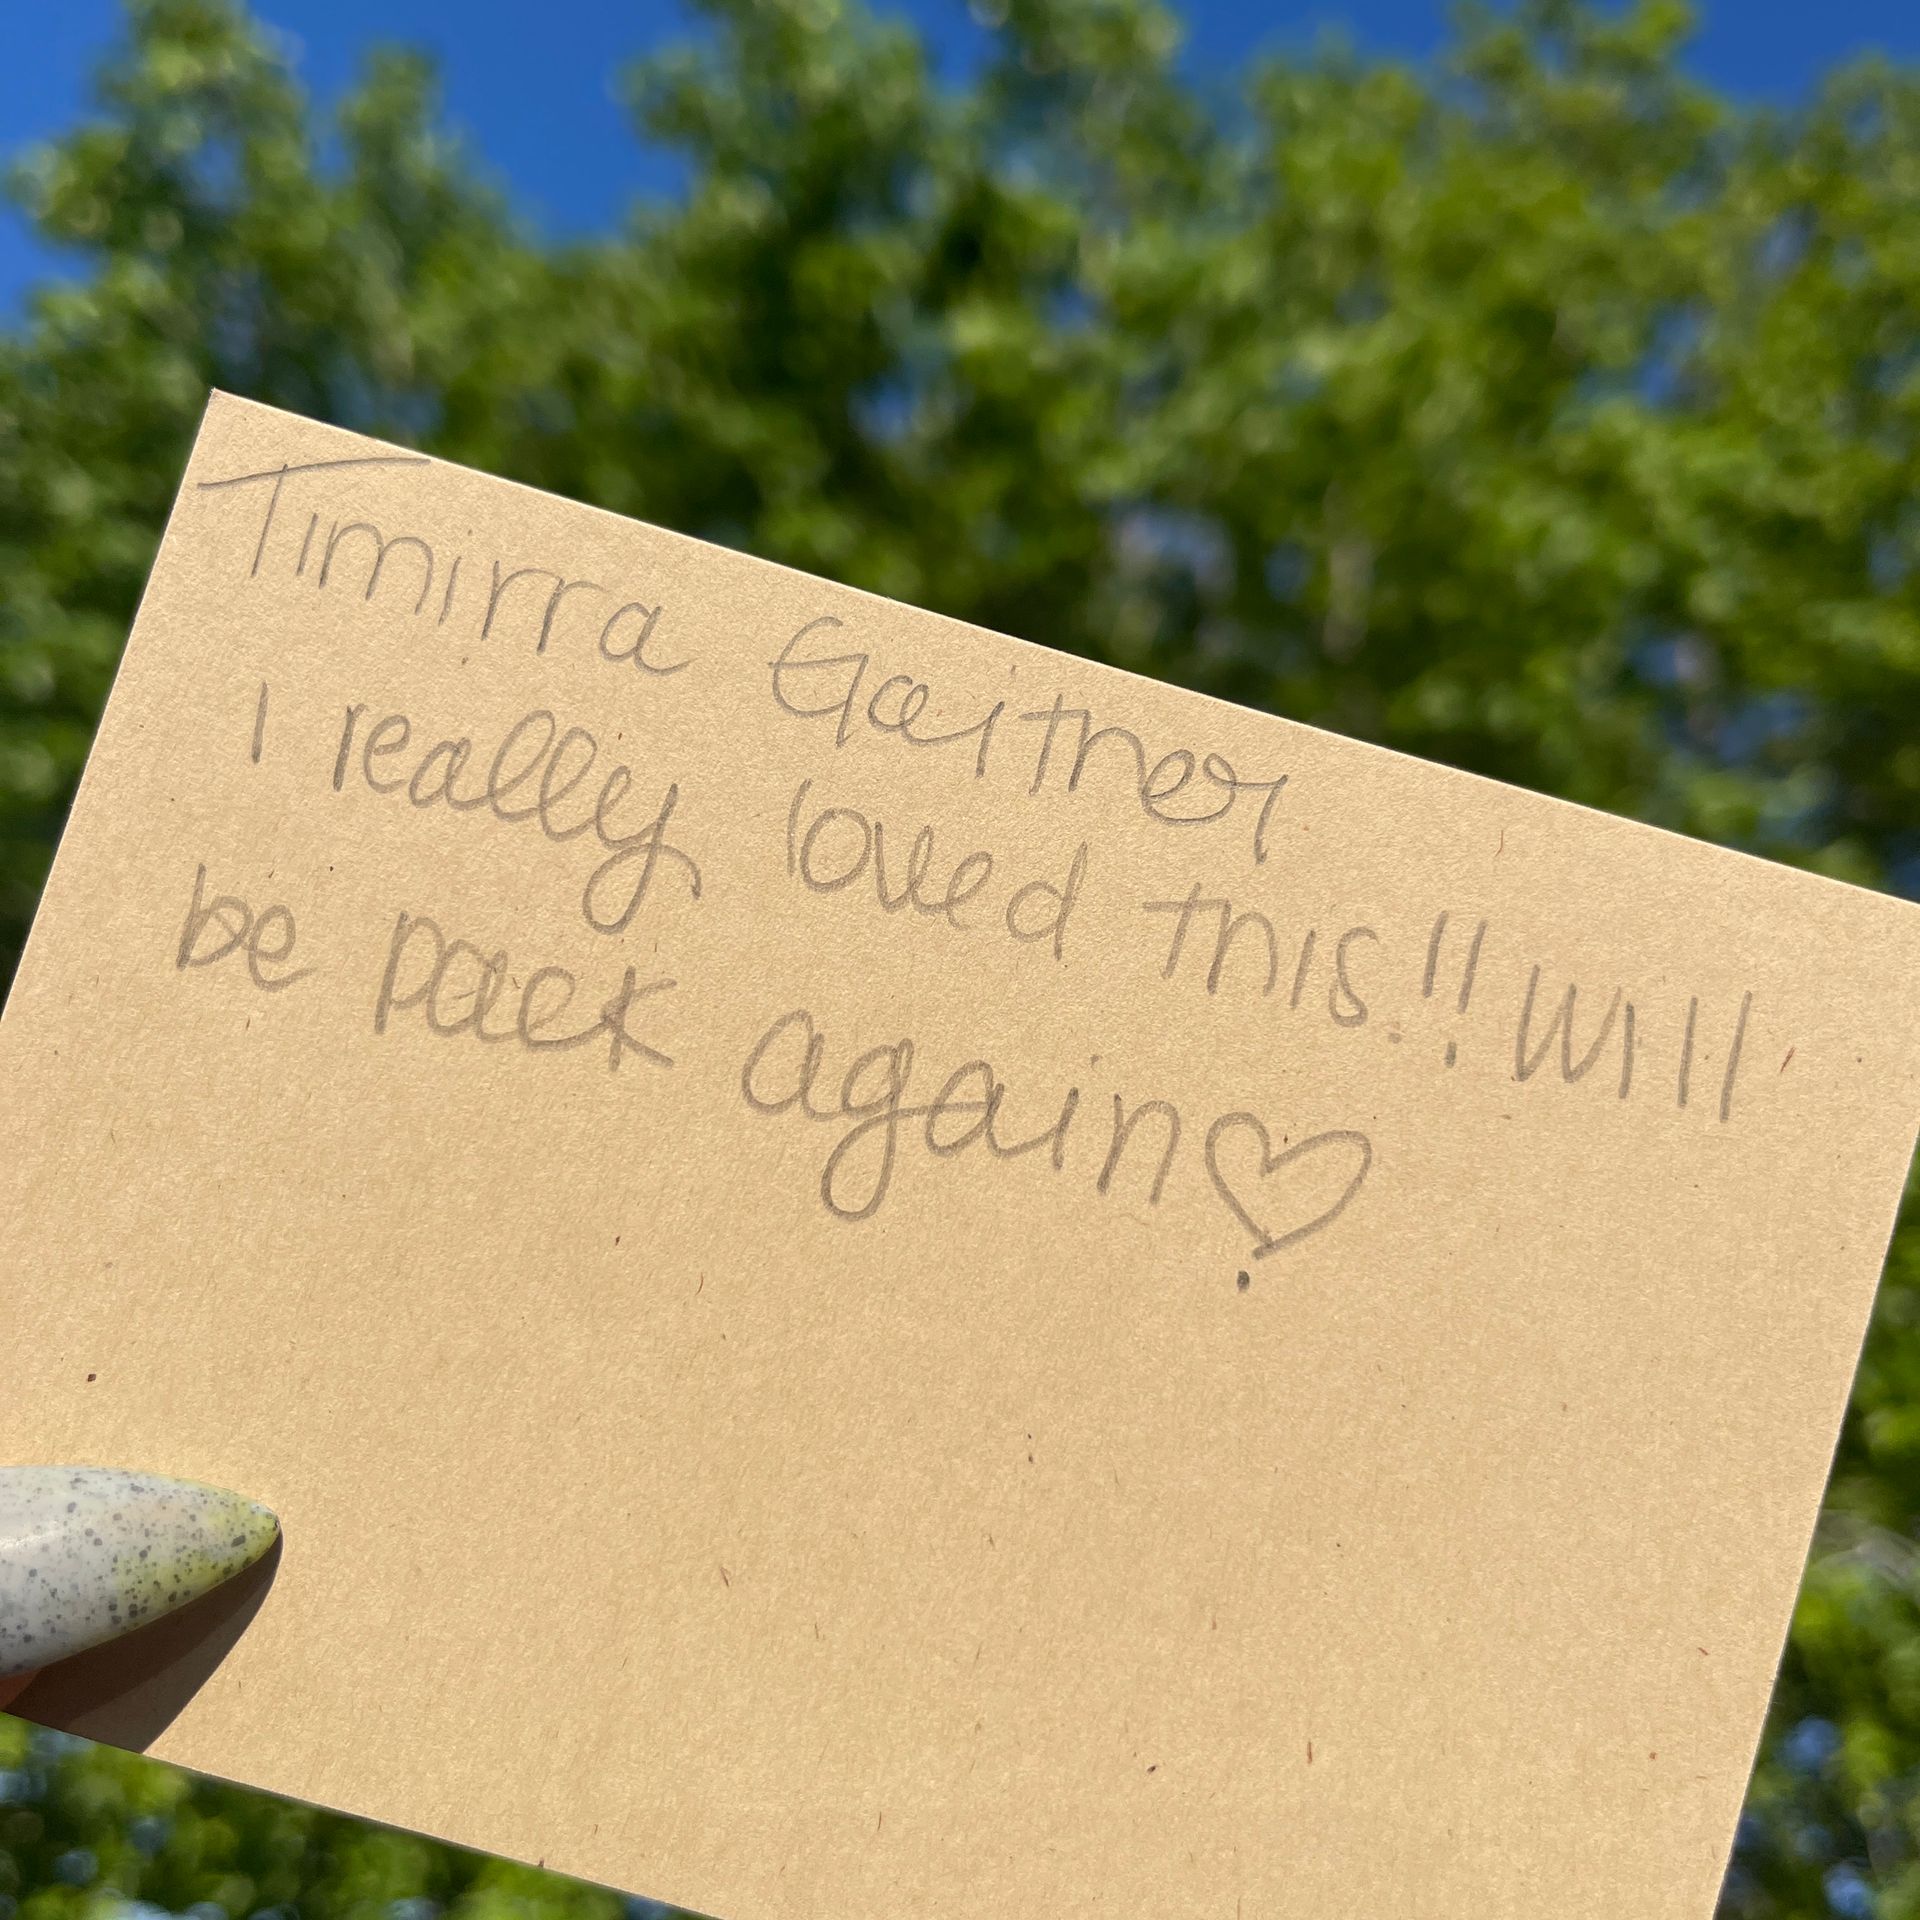 Timirra Gaither
I really loved this!! Will
be back again♡